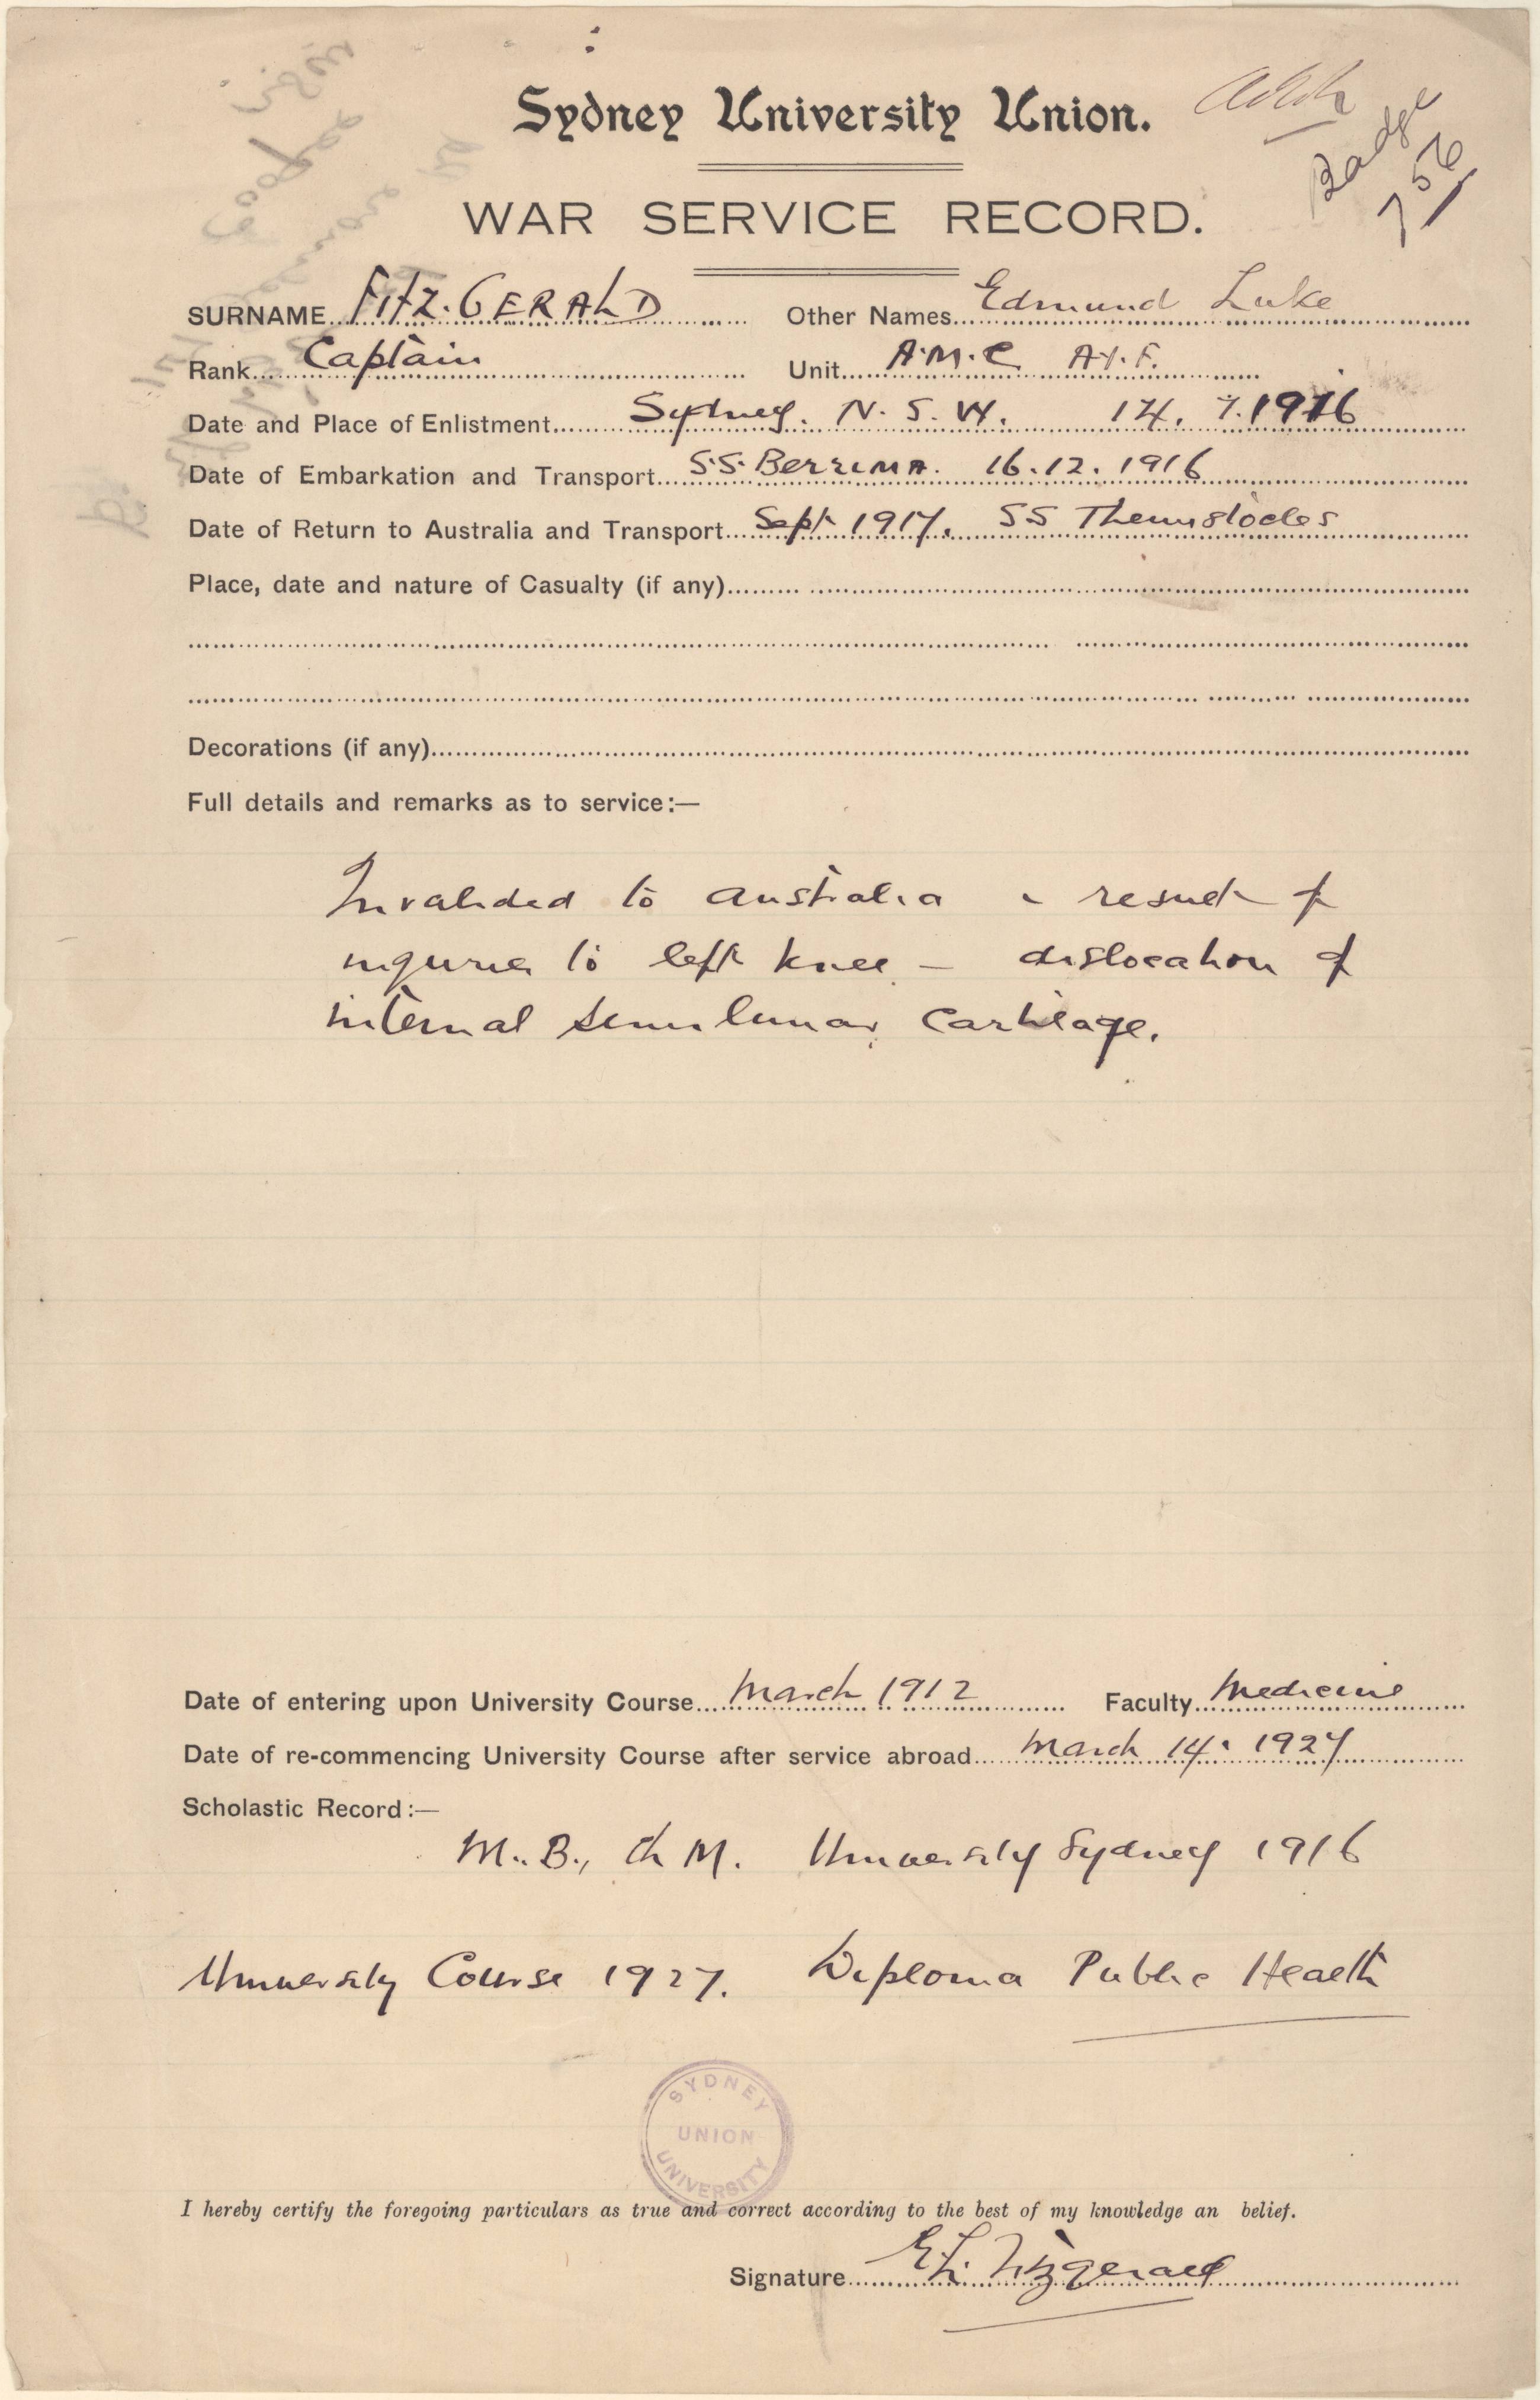 Sydney University Union.
Badge
756
WAR SERVICE RECORD.
SURNAME FITZ.GERALD Other Names Edmund Luke
Rank Captain Unit A.M.C A.I.F.
Date and Place of Enlistment Sydney. N.S.W. 14. 7. 1916
Date of Embarkation and Transport S.S. BERRIMA. 16.12.1916
Date of Return to Australia and Transport Sept 1917. SS Themistocles
Place, date and nature of Casualty (if any)
Decorations (if any)
Full details and remarks as to service:—
Invalided to Australia result of
injuries to left knee — dislocation of
internal semilunar cartilage.
Date of entering upon University Course March 1912 Faculty Medicine
Date of re-commencing University Course after service abroad March 14. 1927
Scholastic Record:—
M.B., Ch M. University Sydney 1916
University Course 1927. Diploma Public Health
SYDNEY
UNION
UNIVERSITY
I hereby certify the foregoing particulars as true and correct according to the best of my knowledge an belief.
Signature E.L. Fitzgerald